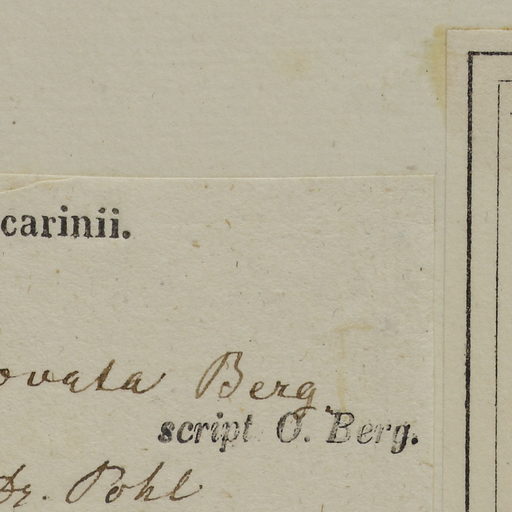 carinii.
ovata Berg
script. O. Berg.
Dr. Pohl